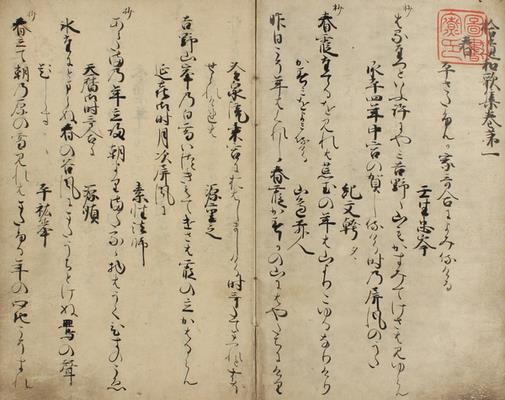 拾遺和歌集巻第一
春
平さたふんか家哥合によみ侍りける
壬生忠岑
はるたつといふ許にや三吉野の山もかすみてけさは見ゆらん
承平四年中宮の賀し侍りける時の屏風のうた
紀文幹
春霞たてるを見れは荒玉の年は山よりこゆるなりけり
かすみをよみ侍りける
山邊赤人
昨日こそ年はくれしか春霞かすかの山にはやたちにけり
冷泉院東宮におはしましける時哥たてまつれとおほ
せられけれは
源重之
吉野山峯の白雪いつきえてけさは霞の立かはるらん
延喜御時月次屏風に
素性法師
あらたまの年立帰朝よりまたるゝ物はうくひすのこゑ
天暦御時哥合に
源順
氷たにとまらぬ春の谷風にまたうちとけぬ鴬の聲
題しらす
平祐挙
春立て朝の原の雪見れはまたふる年の心ちこそすれ